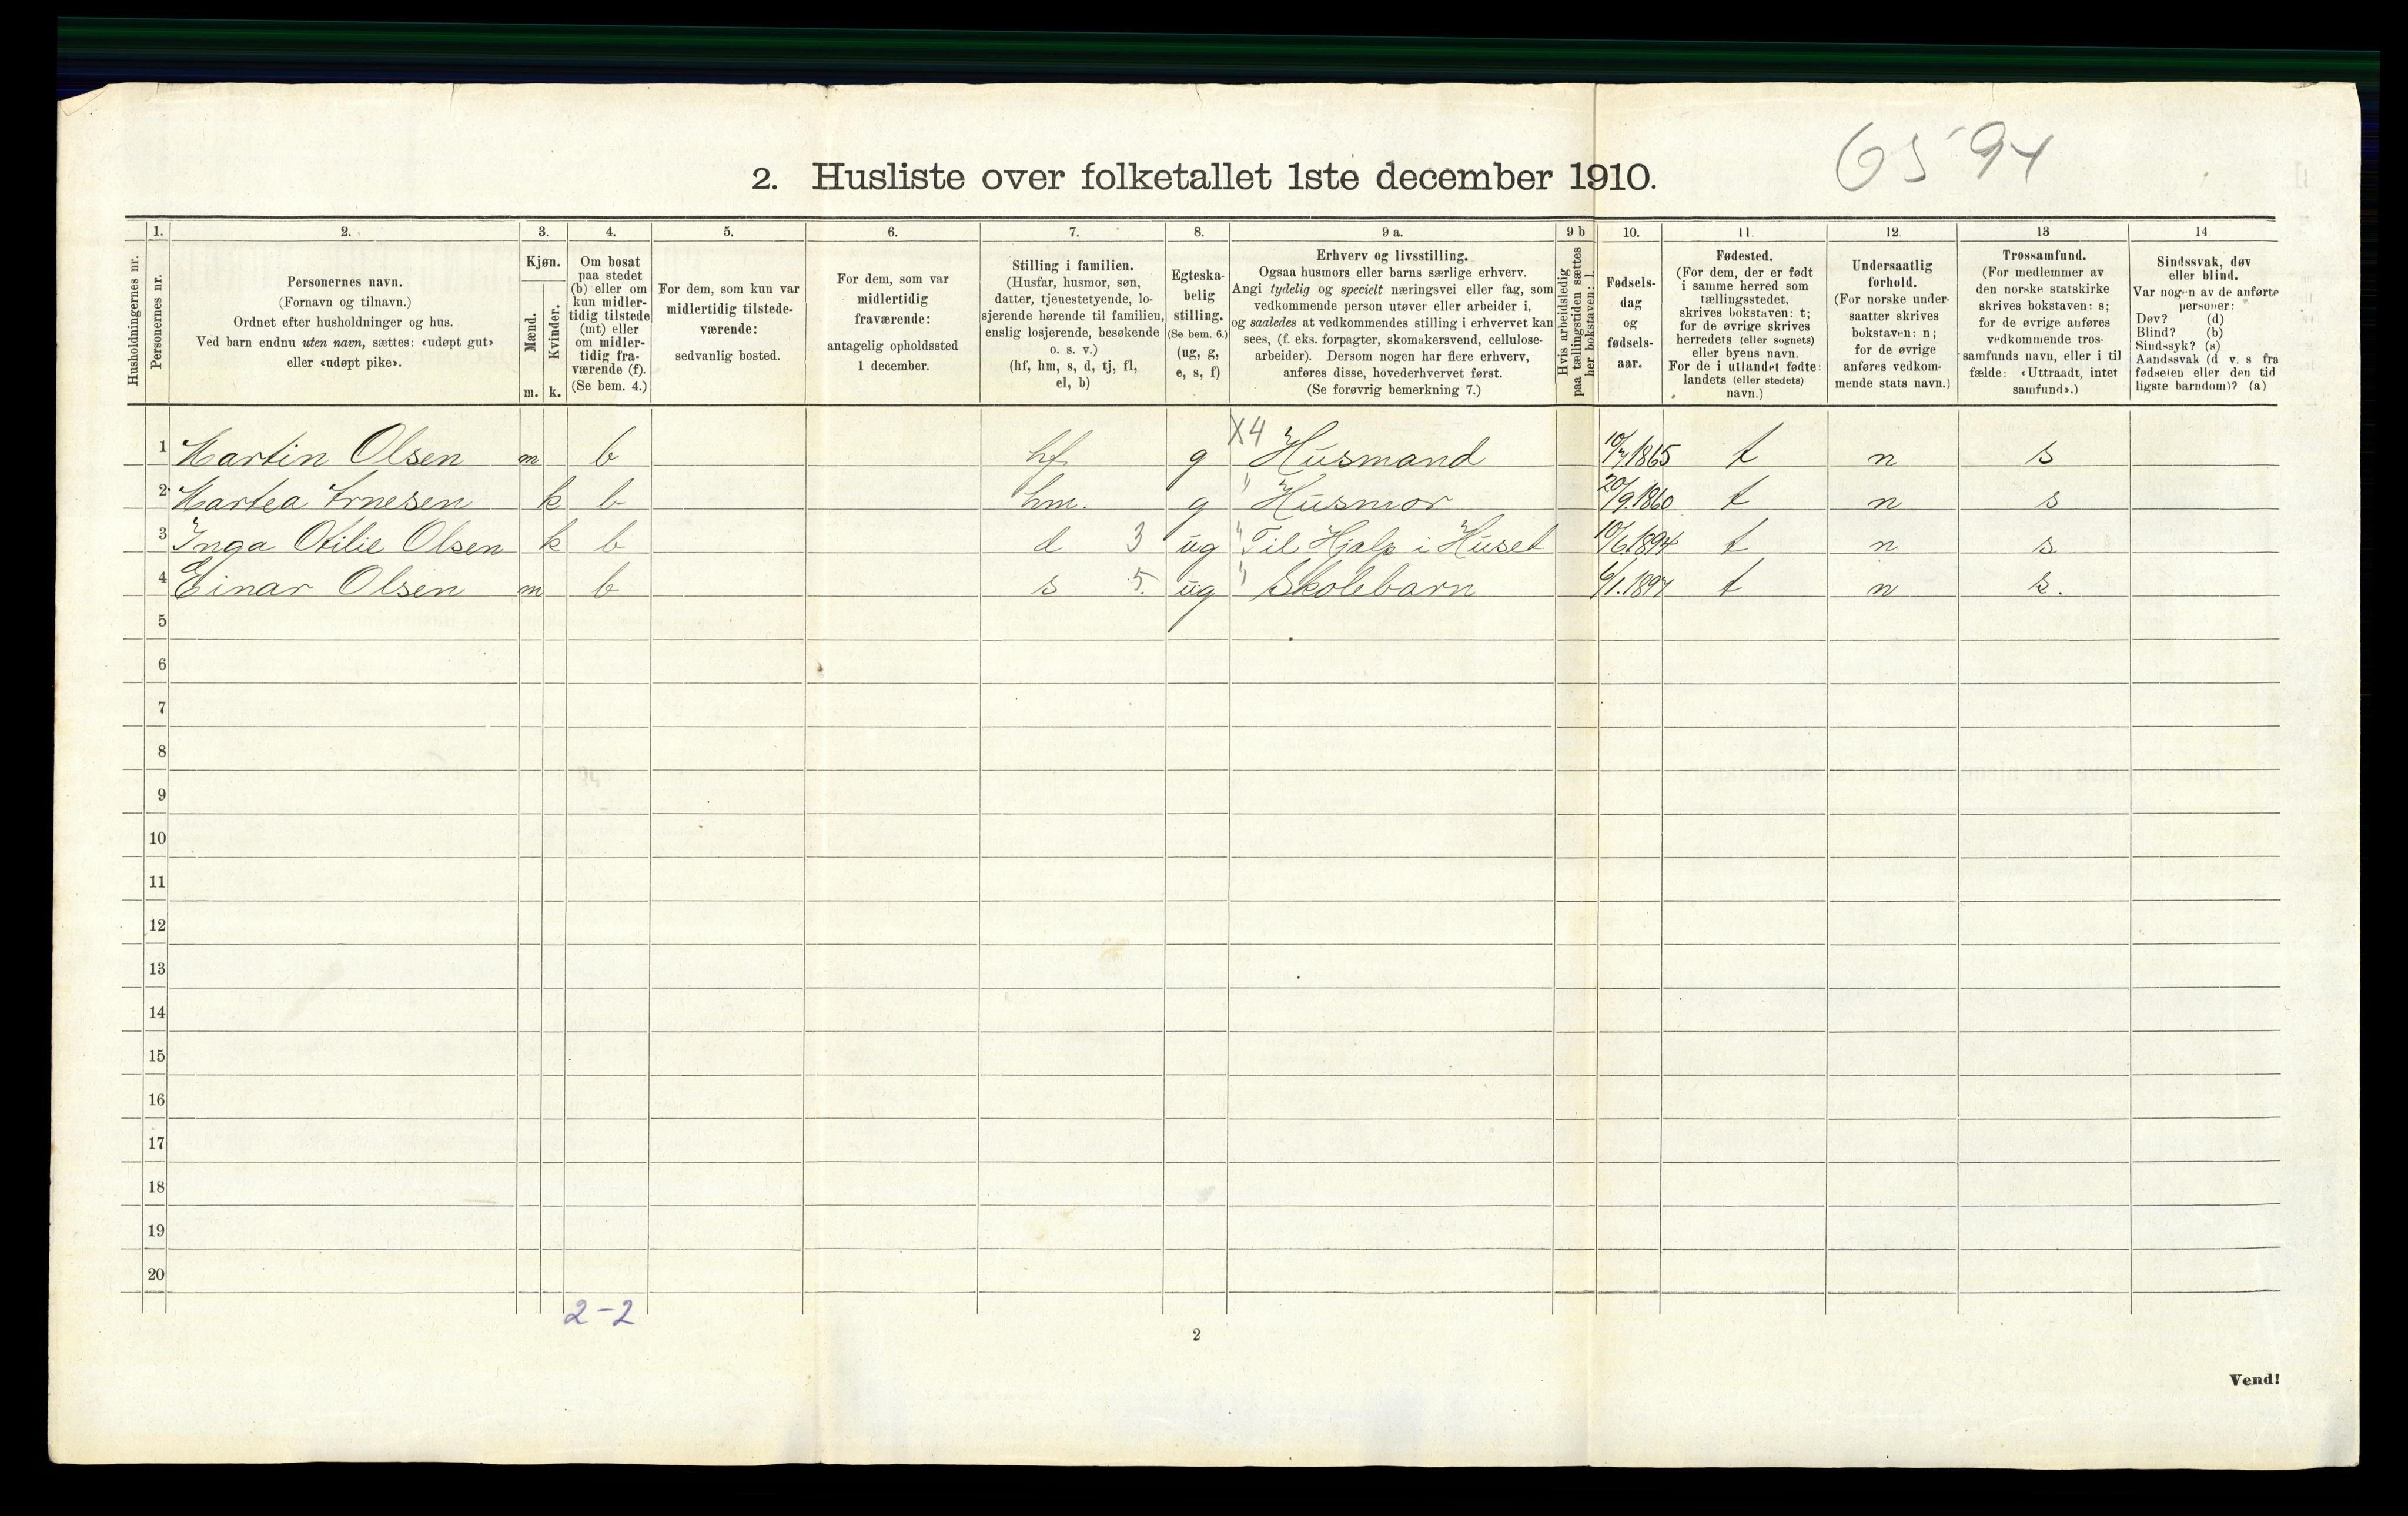 6594
2. Husliste over folketallet 1ste december 1910.
1. 2. 3. 4. 5. 6. 7. 8. 9 a. 9 b 10. 11. 12. 13 14
Husholdningernes nr.
Personernes nr.
Personernes navn.
(Fornavn og tilnavn.)
Ordnet efter husholdninger og hus.
Ved barn endnu uten navn, sættes: «udøpt gut»
eller «udøpt pike».
Kjøn.
Mænd.
Kvinder.
m. k.
Om bosat
paa stedet
(b) eller om
kun midler-
tidig tilstede
(mt) eller
om midler-
tidig fra-
værende (f).
(Se bem. 4.)
For dem, som kun var
midlertidig tilstede-
værende:
sedvanlig bosted.
For dem, som var
midlertidig
fraværende:
antagelig opholdssted
1 december.
Stilling i familien.
(Husfar, husmor, søn,
datter, tjenestetyende, lo-
sjerende hørende til familien,
enslig losjerende, besøkende
o. s. v.)
(hf, hm, s, d, tj, fl,
el, b)
Egteska-
belig
stilling.
(Se bem. 6.)
(ug, g,
e, s, f)
Erhverv og livsstilling.
Ogsaa husmors eller barns særlige erhverv.
Angi tydelig og specielt næringsvei eller fag, som
vedkommende person utøver eller arbeider i,
og saaledes at vedkommendes stilling i erhvervet kan
sees, (f. eks. forpagter, skomakersvend, cellulose-
arbeider). Dersom nogen har flere erhverv,
anføres disse, hovederhvervet først.
(Se forøvrig bemerkning 7.)
Hvis arbeidsledig
paa tællingstiden sættes
her bokstaven: l.
Fødsels-
dag
og
fødsels-
aar.
Fødested.
(For dem, der er født
i samme herred som
tællingsstedet,
skrives bokstaven: t;
for de øvrige skrives
herredets (eller sognets)
eller byens navn.
For de i utlandet fødte:
landets (eller stedets)
navn.)
Undersaatlig
forhold.
(For norske under-
saatter skrives
bokstaven: n;
for de øvrige
anføres vedkom-
mende stats navn.)
Trossamfund.
(For medlemmer av
den norske statskirke
skrives bokstaven: s;
for de øvrige anføres
vedkommende tros-
samfunds navn, eller i til
fælde: «Uttraadt, intet
samfund».)
Sindssvak, døv
eller blind.
Var nogen av de anførte
personer:
Døv? (d)
Blind? (b)
Sindssyk? (s)
Aandssvak (d v. s fra
fødselen eller den tid
ligste barndom)? (a)
X4
1 Martin Olsen m b hf g Husmand 10/7.1865 t n s
2 Martea Arnesen k b hm. g " Husmor 20/9.1860 t n s
3 Inga Otilie Olsen k b d 3 ug " Til Hjælp i Huset 10/6.1894 t n s.
4 Einar Olsen m b s 5. ug " Skolebarn 6/1.1897 t n s.
5
6
7
8
9
10
11
12
13
14
15
16
17
18
19
20
2-2
2
Vend!